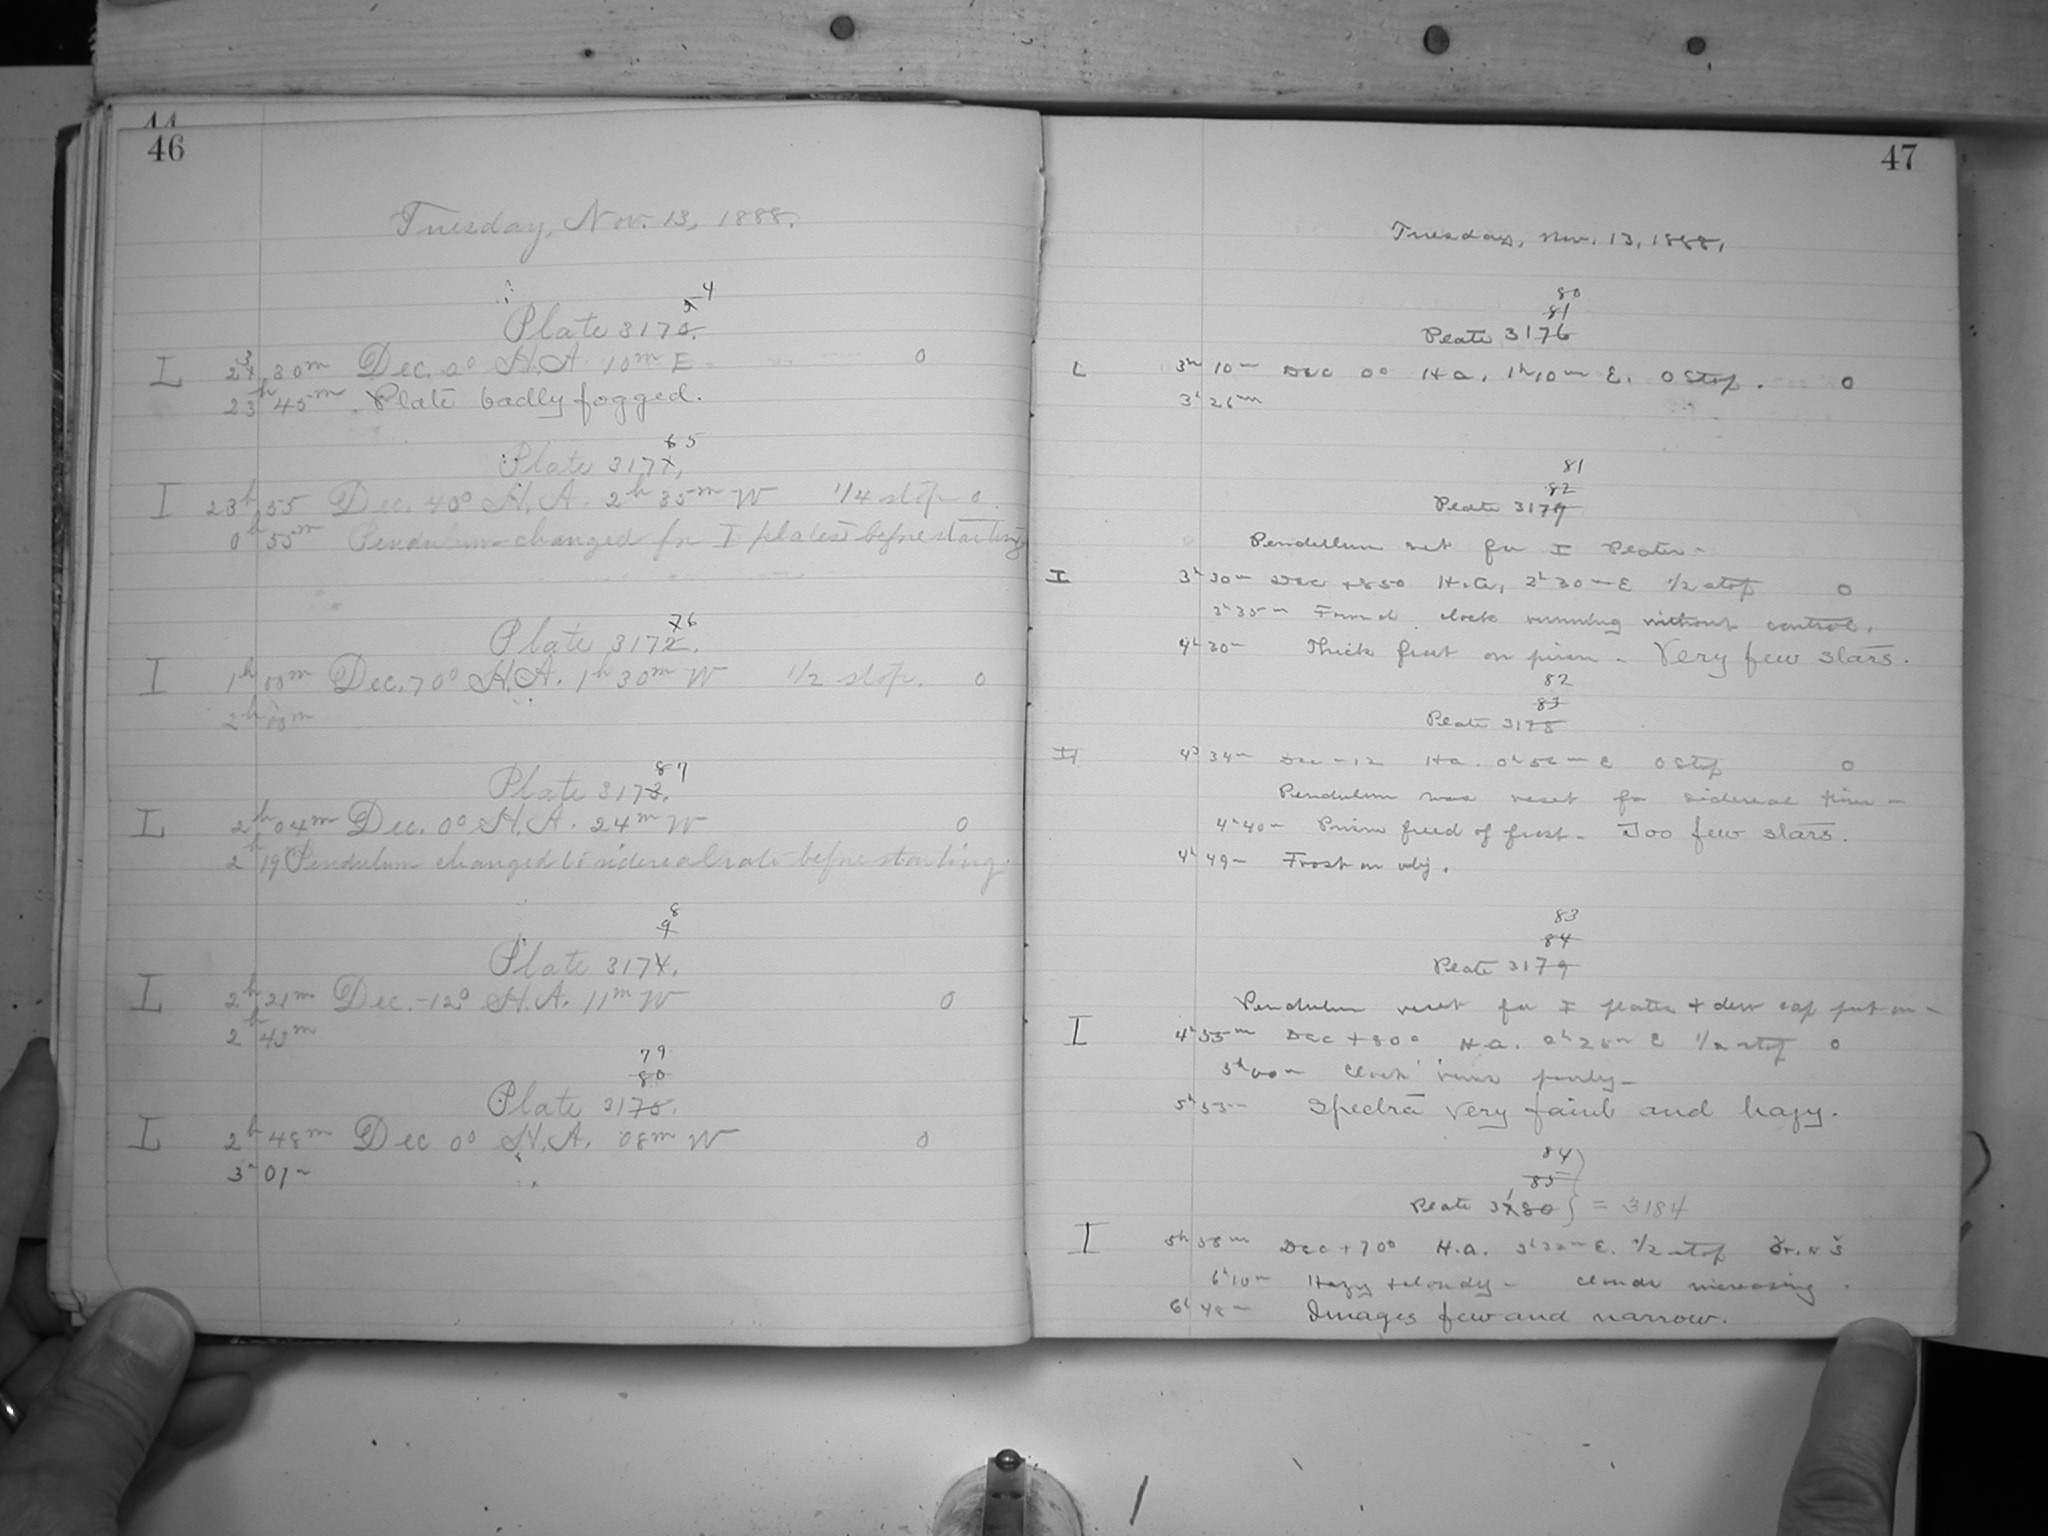 44
46
Tuesday, Nov. 13, 1888.
4
Plate 3170.
L 23 30m Dec. 0° H.A. 10m E. 0
23h 45m Plate badly fogged.
6 5
Plate 3171.
I 23h 55 Dec. 40° H.A. 2h 35m W 1/4 stop 0
0h 55m Pendulum changed for I plates before starting
7 6
Plate 3172.
I 1h 00m Dec. 70° H.A. 1h 30m W 1/2 stop. 0
2h 00m
8 7
Plate 3173.
L 2h 04m Dec. 0° H.A. 24m W 0
2h 19 Pendulum changed to sidereal rate before starting.
8
9
Plate 3174.
L 2h 21m Dec. -12° H.A. 11m W 0
2h 43m
79
80
Plate 3175.
L 2h 48m Dec 0° H.A. 08m W 0
3h 01m
47
Tuesday, Nov. 13, 1888.
80
81
Plate 3176
L 3h 10m Dec 0° H.A. 1h 10m E. 0 stop. 0
3h 26m
81
82
Plate 3177
Pendulum set for I Plates-
I 3h 30m Dec +85° H.A. 2h 30m E 1/2 stop 0
3h 35m Found clock running without control.
4h 30m Thick frost on prism - Very few stars.
82
83
Plate 3178
4h 34m Dec -12 H.A. 0h 56m E 0 stop 0
Pendulum was reset for sidereal time -
4h 40m Prism freed of frost - Too few stars.
4h 49m Frost on obj.
83
84
Plate 3179
Pendulum reset for I plates + dew cap put on -
I 4h 55m Dec +80° H.A. 0h 25m E 1/2 stop 0
5h 00m Clock runs poorly -
5h 53m Spectra very faint and hazy.
84
85
Plate 3180 } = 3184
I 5h 58m Dec +70° H.A. E. 1/2 stop
6h 10m Hazy + cloudy - clouds increasing.
6h 48m Images few and narrow.